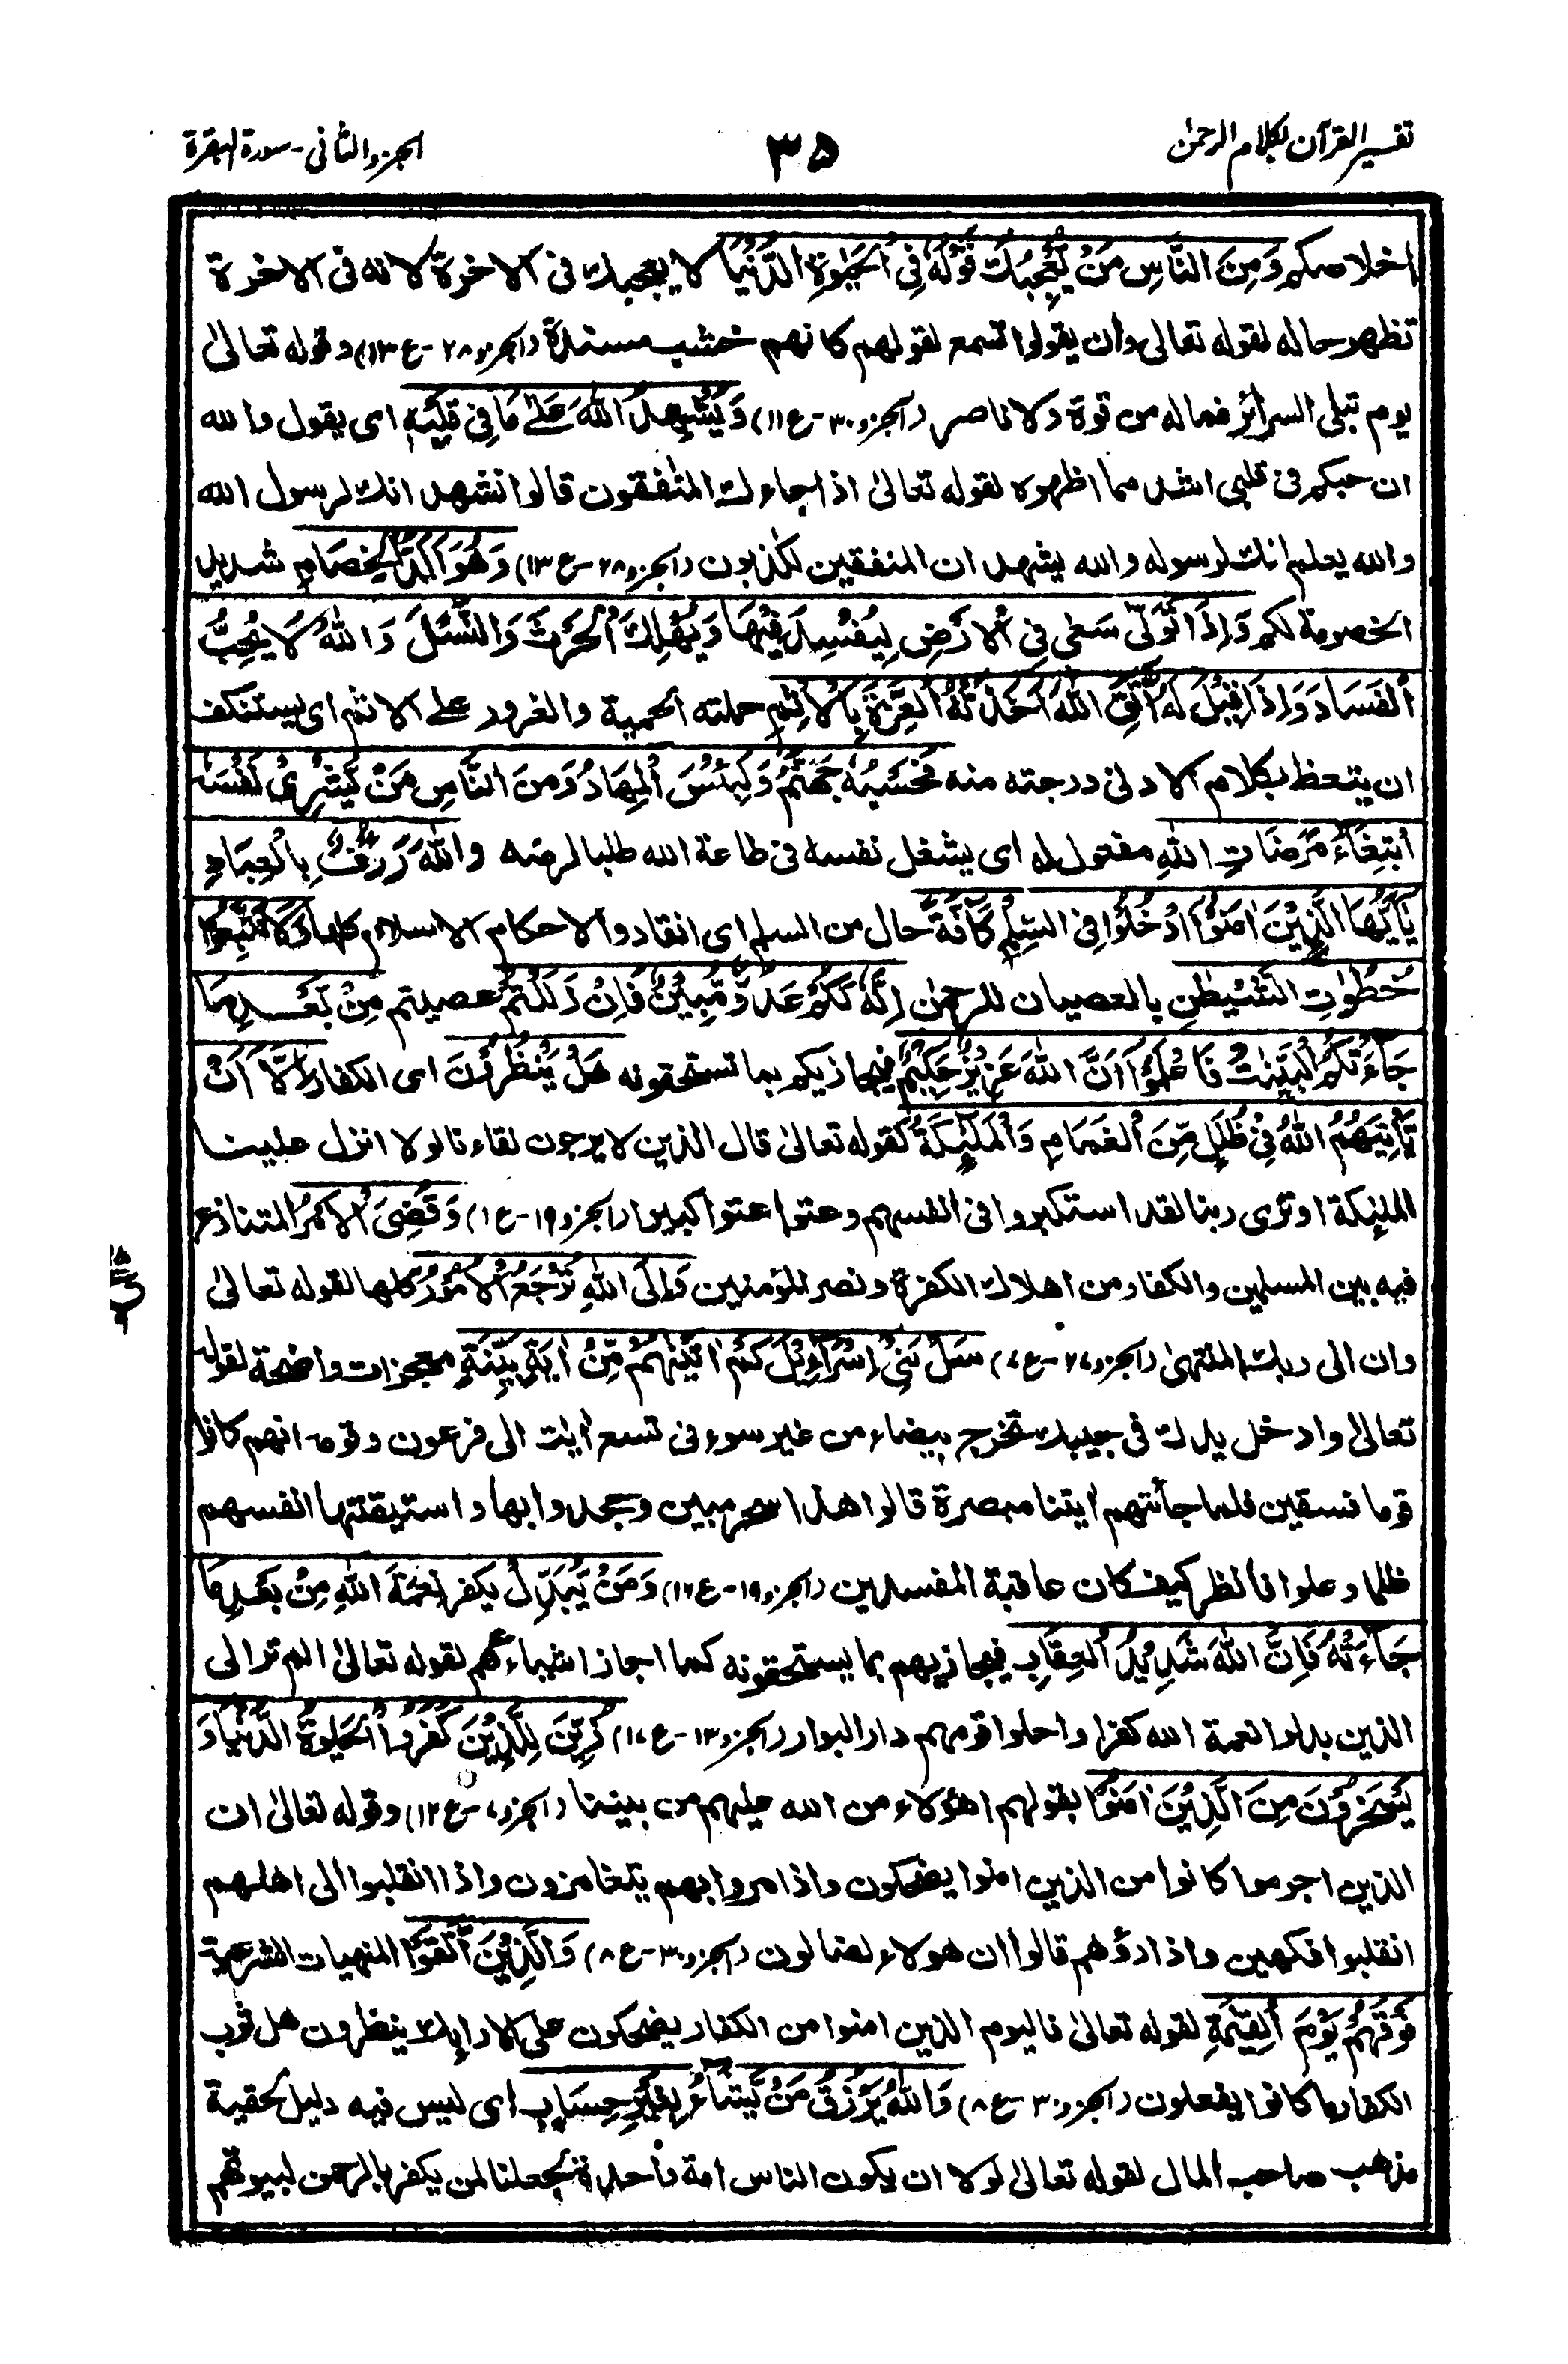 تفسير القرآن بكلام الرحمٰن
٣٥
الجزو الثانى - سورة البقرة
اخلاصكم وَمِنَ النَّاسِ مَنْ يُّعْجِبُكَ قَوْلُهٗ فِى الْحَيٰوةِ الدُّنْيَا لا يعجبك فى الاخرة لانه فى الاخرة
تظهر حاله لقوله تعالى وان يقولوا تسمع لقولهم كانهم خشب مسندة (الجزو ٢٨ - ع ١٣) وقوله تعالىٰ
يوم تبلى السرائر فماله من قوة ولا ناصر (الجزو ٣٠ - ع ١١) وَيُشْهِدُ اللّٰهَ عَلٰى مَا فِى قَلْبِهٖ اى يقول والله
ان حبكم فى قلبى اشد مما اظهره لقوله تعالىٰ اذا جاءك المنٰفقون قالوا نشهد انك لرسول الله
والله يعلم انك لرسوله والله يشهد ان المنفقين لكٰذبون (الجزو ٢٨ - ع ١٣) وَهُوَ اَلَدُّ الْخِصَامِ شديد
الخصومة لكم وَاِذَا تَوَلّٰى سَعٰى فِى الْاَرْضِ لِيُفْسِدَ فِيْهَا وَيُهْلِكَ الْحَرْثَ وَالنَّسْلَ وَاللّٰهُ لَا يُحِبُّ
الْفَسَادَ وَاِذَا قِيْلَ لَهُ اتَّقِ اللّٰهَ اَخَذَتْهُ الْعِزَّةُ بِالْاِثْمِ حملته الحمية والغرور على الاثم اى يستنكف
ان يتعظ بكلام الادنى درجته منه فَحَسْبُهٗ جَهَنَّمُ وَلَبِئْسَ الْمِهَادُ وَمِنَ النَّاسِ مَنْ يَّشْرِىْ نَفْسَهُ
ابْتِغَاءَ مَرْضَاتِ اللّٰهِ مفعول له اى يشغل نفسه فى طاعة الله طلبا لرضه وَاللّٰهُ رَءُوْفٌ بِالْعِبَادِ
يٰاَيُّهَا الَّذِيْنَ اٰمَنُوا ادْخُلُوْا فِى السِّلْمِ كَافَّةً حال من السلم اى انقادوا لاحكام الاسلام كلها وَلَا تَتَّبِعُوْا
خُطُوٰتِ الشَّيْطٰنِ بالعصيان للرحمٰن اِنَّهٗ لَكُمْ عَدُوٌّ مُّبِيْنٌ فَاِنْ زَلَلْتُمْ عصيتم مِنْ بَعْدِ مَا
جَاءَتْكُمُ الْبَيِّنٰتُ فَاعْلَمُوْا اَنَّ اللّٰهَ عَزِيْزٌ حَكِيْمٌ فيجازيكم بما تستحقونه هَلْ يَنْظُرُوْنَ اى الكفار اِلَّا اَنْ
يَّاْتِيَهُمُ اللّٰهُ فِىْ ظُلَلٍ مِّنَ الْغَمَامِ وَالْمَلٰئِكَةُ كقوله تعالىٰ قال الذين لا يرجون لقاءنا لولا انزل علينا
الملٰئكة او نرى ربنا لقد استكبروا فى انفسهم وعتوا عتوا كبيرا (الجزو ١٩ - ع ١) وَقُضِىَ الْاَمْرُ المتنازع
فيه بين المسلمين والكفار من اهلاك الكفرة ونصر المؤمنين وَاِلَى اللّٰهِ تُرْجَعُ الْاُمُوْرُ كلها لقوله تعالىٰ
وان الى ربك المنتهىٰ (الجزو ٢٧ - ع ٧) سَلْ بَنِىْ اِسْرَائِيْلَ كَمْ اٰتَيْنٰهُمْ مِّنْ اٰيَةٍ بَيِّنَةٍ معجزات واضحة لقوله
تعالىٰ وادخل يدك فى جيبك تخرج بيضاء من غير سوء فى تسع اٰيٰت الى فرعون وقومه انهم كانوا
قوما فسقين فلما جاءتهم اٰيتنا مبصرة قالوا هذا سحر مبين وجحدوا بها واستيقنتها انفسهم
ظلما وعلوا فانظر كيف كان عاقبة المفسدين (الجزو ١٩ - ع ١٦) وَمَنْ يُّبَدِّلْ يكفر نِعْمَةَ اللّٰهِ مِنْ بَعْدِ مَا
جَاءَتْهُ فَاِنَّ اللّٰهَ شَدِيْدُ الْعِقَابِ فيجازيهم بما يستحقونه كما اجاز اشياءهم لقوله تعالىٰ الم تر الى
الذين بدلوا نعمة الله كفرا واحلوا قومهم دار البوار (الجزو ١٣ - ع ١٧) زُيِّنَ لِلَّذِيْنَ كَفَرُوا الْحَيٰوةُ الدُّنْيَا وَ
يَسْخَرُوْنَ مِنَ الَّذِيْنَ اٰمَنُوْا بقولهم اهؤلاء من الله عليهم من بيننا (الجزو ٧ - ع ١٢) وقوله تعالىٰ ان
الذين اجرموا كانوا من الذين امنوا يضحكون واذا مروا بهم يتغامزون واذا انقلبوا الى اهلهم
انقلبوا فكهين واذا راؤهم قالوا ان هولاء لضالون (الجزو ٣٠ - ع ٨) وَالَّذِيْنَ اتَّقَوْا المنهيات الشرعية
فَوْقَهُمْ يَوْمَ الْقِيٰمَةِ لقوله تعالىٰ فاليوم الذين امنوا من الكفار يضحكون على الارائك ينظرون هل ثوب
الكفار ما كانوا يفعلون (الجزو ٣٠ - ع ٨) وَاللّٰهُ يَرْزُقُ مَنْ يَّشَاءُ بِغَيْرِ حِسَابٍ اى ليس فيه دليل لحقية
مذهب صاحب المال لقوله تعالىٰ لولا ان يكون الناس امة واحدة لجعلنا لمن يكفر بالرحمن لبيوتهم